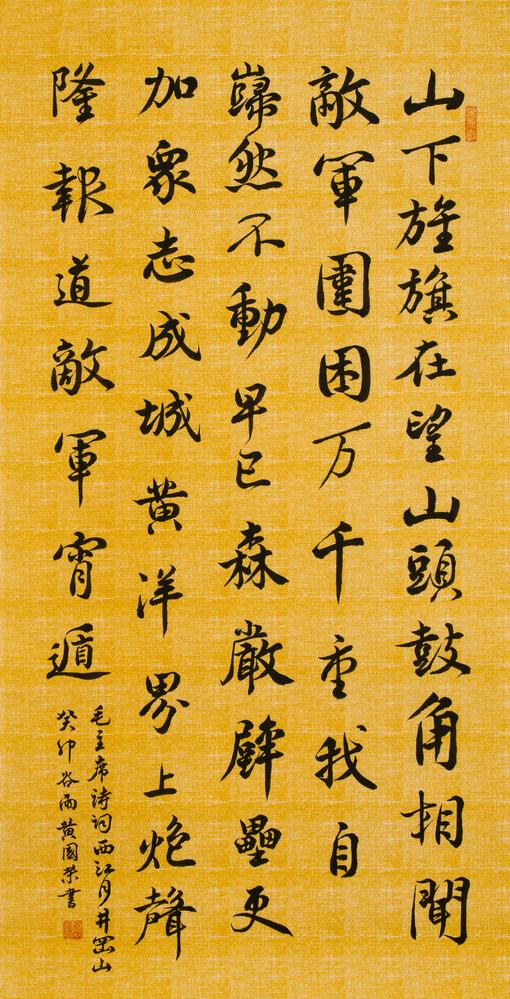 山下旌旗在望山頭鼓角相聞
敵軍圍困万千重我自
巋然不動早已森嚴壁壘更
加衆志成城黄洋界上炮聲
隆報道敵軍宵遁
毛主席詩詞西江月井岡山
癸卯谷雨黄國榮書